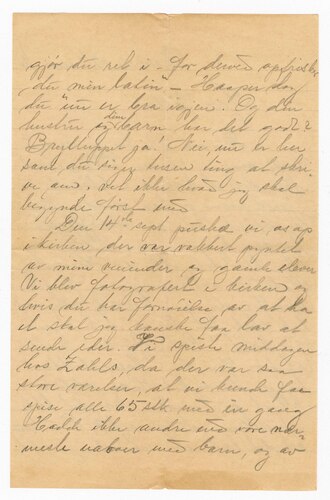 gjør du ret i - for derved opfrisker
du min latin" - Haaper dog
du nu er bra igjen. Og din
hustru og den barn har det godt?
Bryllupet ja! Nei, nu er her
som du siger tusen ting at skri-
ve om. vet ikke hvad jeg skal
begynde først med
Den 14de sept. pustede vi os op
i kirken, der var vakkert pyntet
av mine veninder og gamle elever
Vi blev fotografert i kirken og
hvis du har fornøielse av at ha
et skal jeg kanske faa lov at
sende eder. Vi spiste middagen
hos Zahls, da der var saa
store værelser, at vi kunde faa
spise alle 65 stk. med en gang
Hadde ikke andre end vore nær-
meste naboer med barn, og av